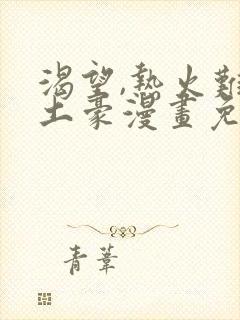 渴望,熱火難
土豪漫畫免
青葦